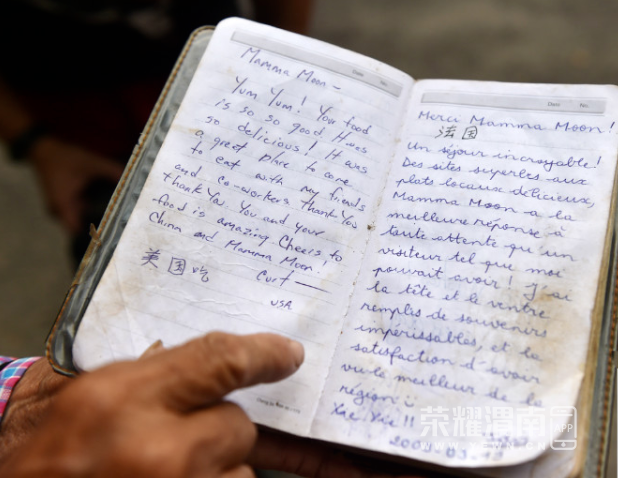 Date No.
Mamma Moon —
Yum Yum! You food
is so so good It was
so delicious! It was
a great place to come
to eat with my friends
and co-workers Thank You
thank You. You and your
food is amazing Cheers to
China and Mamma Moon!
美国吃 Curt —
USA
Date No.
Merci Mamma Moon!
法国
Un séjour incroyable!
Des sites superbes aux
plats locaux délicieux,
Mamma Moon a la
meilleure réponse à
toute attente qu'un
visiteur tel que moi
pourrait avoir! J'ai
la tête et le ventre
remplis de souvenirs
impérissables, et la
satisfaction d'avoir
vu le meilleur de la
région
Xie Xie!!
荣耀渭南 APP